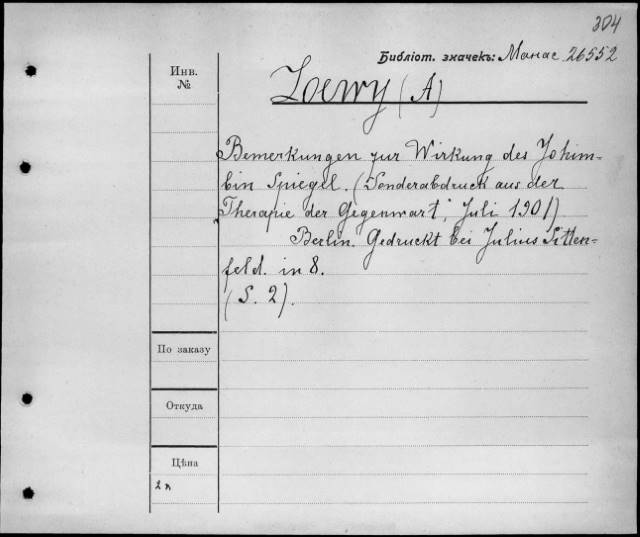 304
Библіот. значекъ: Манас 26552
Инв.
№
Loewy (A)
Bemerkungen zur Wirkung des Johim-
bin Spiegel. (Sonderabdruck aus der
„Therapie der Gegenwart", Juli 1901)
Berlin. Gedruckt bei Julius Sitten-
feld. in 8.
(S. 2).
По заказу
Откуда
Цѣна